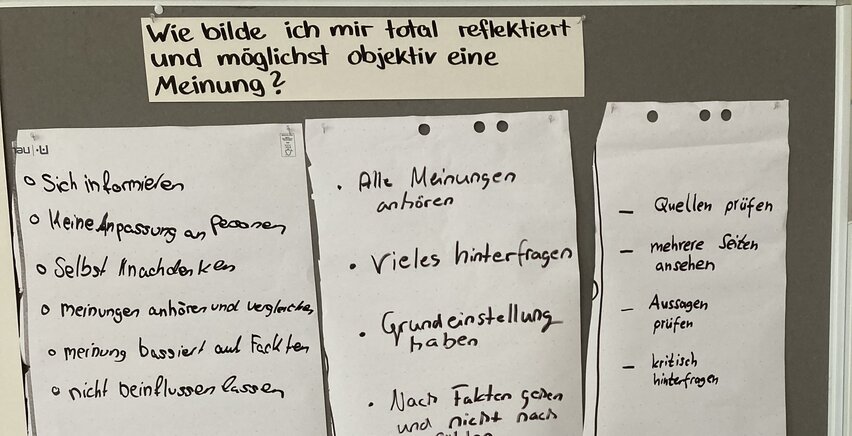 Wie bilde ich mir total reflektiert
und möglichst objektiv eine
Meinung?
Sich informieren
Keine Anpassung an Personen
Selbst nachdenken
meinungen anhören und vergleichen
meinung bassiert auf Fackten
nicht beinflussen lassen
Alle Meinungen
anhören
Vieles hinterfragen
Grundeinstellung
haben
Nach Fakten gehen
und nicht nach
Quellen prüfen
mehrere Seiten
ansehen
Aussagen
prüfen
kritisch
hinterfragen